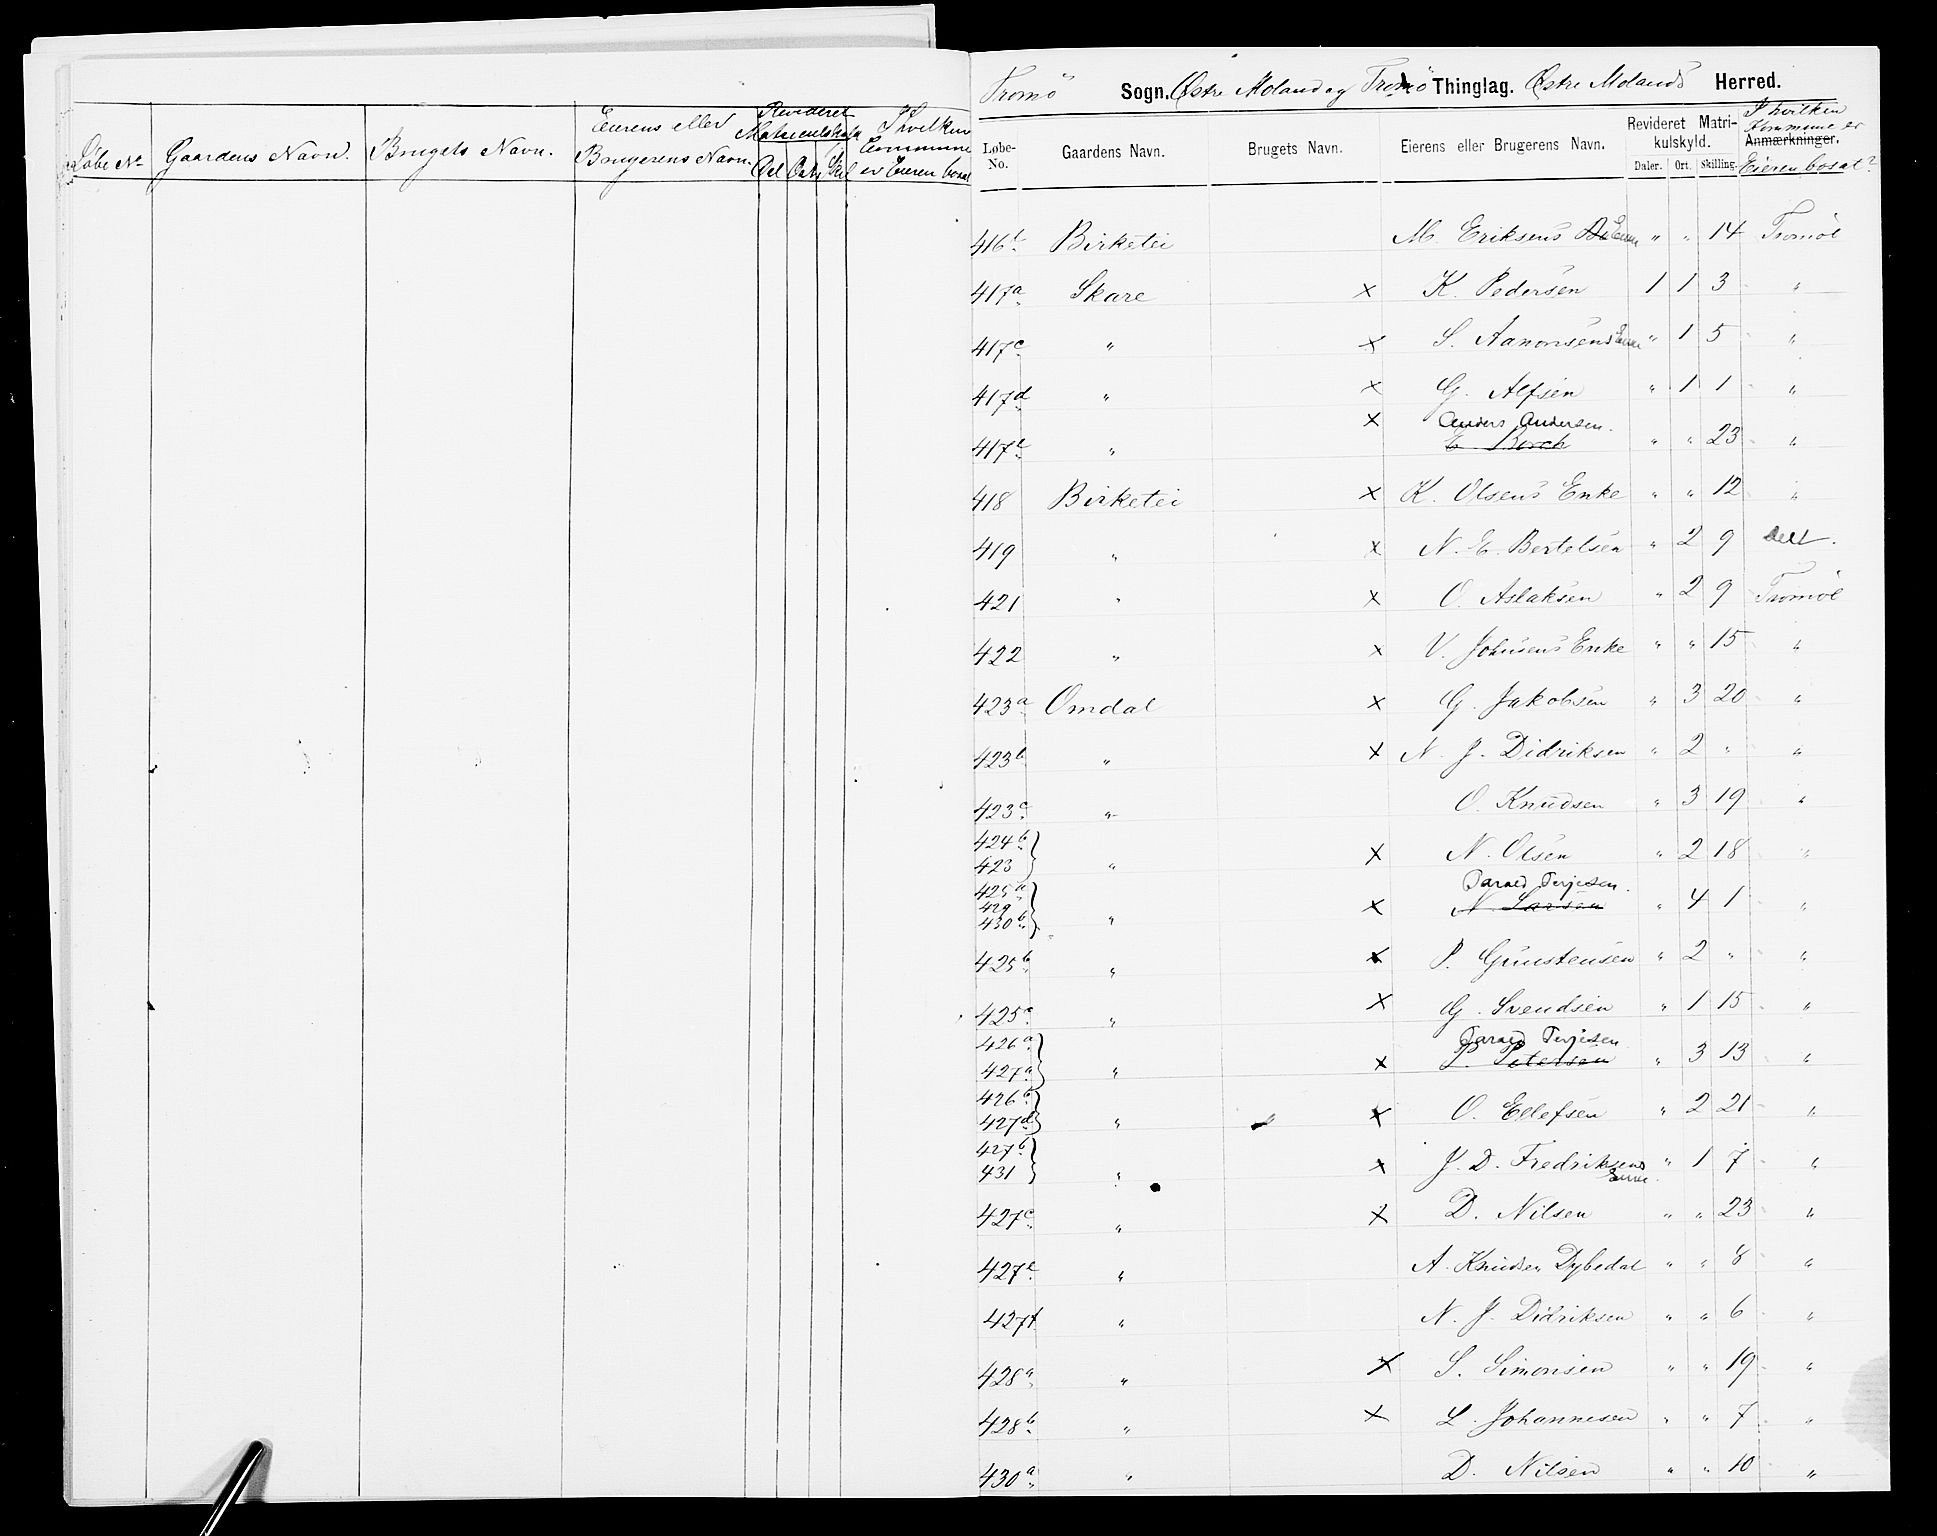 Løbe No Gaardens Navn. Brugets Navn. Eierens eller Brugerens Navn. Revideret Matriculskyld Dal Ort Skil I hvilken Commune er Eieren bosat
Tromö Sogn. Østre Moland og Tromö Thinglag. Østre Molands Herred.
Løbe-No. Gaardens Navn. Brugets Navn. Eierens eller Brugerens Navn. Revideret Matrikulskyld. Daler. Ort. Skilling. Anmærkninger. I hvilken Kommune er Eieren bosat?
416b Birketei M. Eriksens Enke " " 14 Tromöe
417a Skare × K. Pedersen 1 1 3 "
417c " × S. Aanonsens Enke " 1 5 "
417d " × G. Alfsen " 1 1 "
× Anders Andersen.
417e " E. Borch " " 23 "
418 Birketei × K. Olsens Enke " " 12 "
419 " × N. E. Bertelsen " 2 9 delt.
421 " × O. Aslaksen " 2 9 Tromöe
422 " × V. Johnsens Enke " " 15 "
423a Omdal × G. Jakobsen " 3 20 "
423b " × N. J. Didriksen " 2 " "
423c " O. Knudsen " 3 19 "
424b
423 " × N. Olsen " 2 18 "
425a Tarald Terjesen.
429
430b " × N. Larsen " 4 1 "
425b " × P. Gunstensen " 2 " "
425c " × G. Svendsen " 1 15 "
426a Tarald Terjesen
427a " × P. Petersen " 3 13 "
426b
427d " × O. Ellefsen " 2 21 "
427b
431 " × J. D. Fredriksens Enke. " 1 7 "
427c " × D. Nilsen " " 23 "
427e " A. Knudsen Dybedal " " 8 "
427f " N. J. Didriksen " " 6 "
428a " × S. Simonsen " " 19 "
428b " × L. Johannesen " " 7 "
430a " D. Nilsen " " 10 "